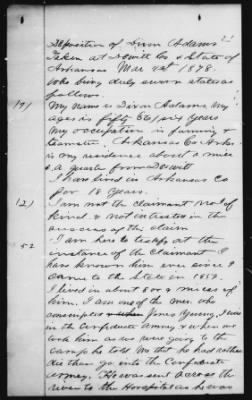 Deposition of Dixon Adams
Taken at Dewitt Co & State of
Arkansas Mar 1st 1878.
who being duly sworn states as
follows
My name is Dixon Adams, my
age is fifty six years
My occupation is farming &
teamster. Arkansas Co Ark.
is my residence about a mile
& a quarter from Dewitt
I have lived in Arkansas Co
for 18 years.
I am not the claimant nor of
kind & not interested in the
success of the claim
52
I am here to testify at the
instance of the claimant I
have known him ever since I
came to the state in 1859.
I lived in about 8 or 9 miles of
him. I am one of the men who
Jones Young, I was
in the Confederate Army, & when we
took him as we were going to the
camp he told us that he had rather
die than go into the Confederate
army. He was sent across the
river to the Hospital as he was